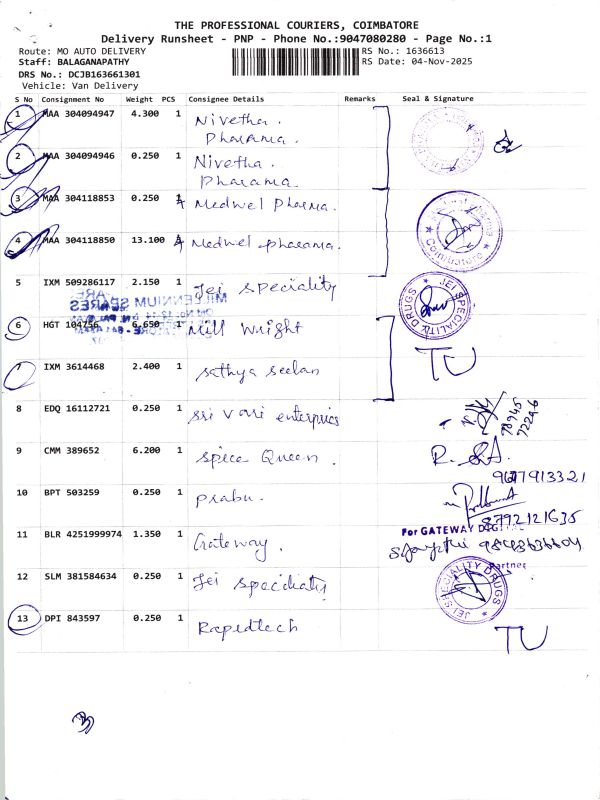 THE PROFESSIONAL COURIERS, COIMBATORE
Delivery Runsheet - PNP - Phone No.:9047080280 - Page No.:1
Route: MO AUTO DELIVERY RS No.: 1636613
Staff: BALAGANAPATHY RS Date: 04-Nov-2025
DRS No.: DCJB163661301
Vehicle: Van Delivery
S No Consignment No Weight PCS Consignee Details Remarks Seal & Signature
1 MAA 304094947 4.300 1 Nivetha. Pharama.
2 MAA 304094946 0.250 1 Nivetha. Pharama.
3 MAA 304118853 0.250 1 Medwel Pharma.
4 MAA 304118850 13.100 Medwel pharama.
Coimbatore
5 IXM 509286117 2.150 1 Jei Speciality
JEI SPECIALITY DRUGS
MILLENNIUM SPARES
6 HGT 104756 6.650 1 Mill Wright
7 IXM 3614468 2.400 1 Sathya Seelan
TU
8 EDQ 16112721 0.250 1 Sri Vari enterprises
78945
72296
9 CMM 389652 6.200 1 Spice Queen.
9677913321
10 BPT 503259 0.250 1 Prabu.
8792121635
11 BLR 4251999974 1.350 1 Gateway.
For GATEWAY DIGITAL
Partner
12 SLM 381584634 0.250 1 Jei Speciality
JEI SPECIALITY DRUGS
13 DPI 843597 0.250 1 Rapedtech
TU